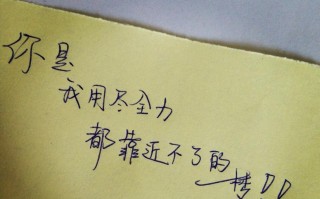 你是
我用尽全力
都靠近不了的